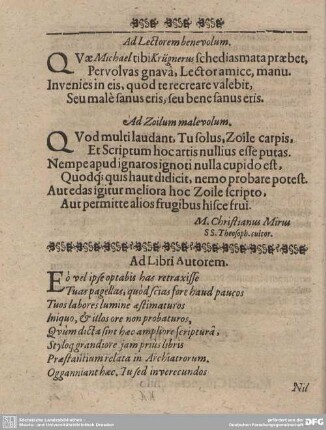 Ad Lectorem benevolum.
QVæ Michael tibi Krügnerus schediasmata præbet,
Pervolvas gnavâ, Lector amice, manu.
Invenies in eis, quod te recreare valebit,
Seu malè sanus eris, seu bene sanus eris.
Ad Zoilum malevolum.
QVod multi laudant, Tu solus, Zoïle carpis,
Et Scriptum hoc artis nullius esse putas.
Nempe apud ignaros ignoti nulla cupido est,
Quodq; quis haut didicit, nemo probare potest.
Aut edas igitur meliora hoc Zoile scripto,
Aut permitte alios frugibus hisce frui.
M. Christianus Mirus
SS. Theosoph. cultor.
Ad Libri Autorem.
EO vel ipse optabis has retraxisse
Tuas pagellas, quòd scias fore haud paucos
Tuos labores lumine æstimaturos
Iniquo, & illos ore non probaturos,
Qvùm dicta sint hæc ampliore scripturâ,
Styloq grandiore jam priùs libris
Præstantium relata in Archiatrorum.
Oggannianthæc. Tu sed inverecundos
Nil
Sächsische Landesbibliothek -
Staats- und Universitätsbibliothek Dresden
gefördert von der
Deutschen Forschungsgemeinschaft